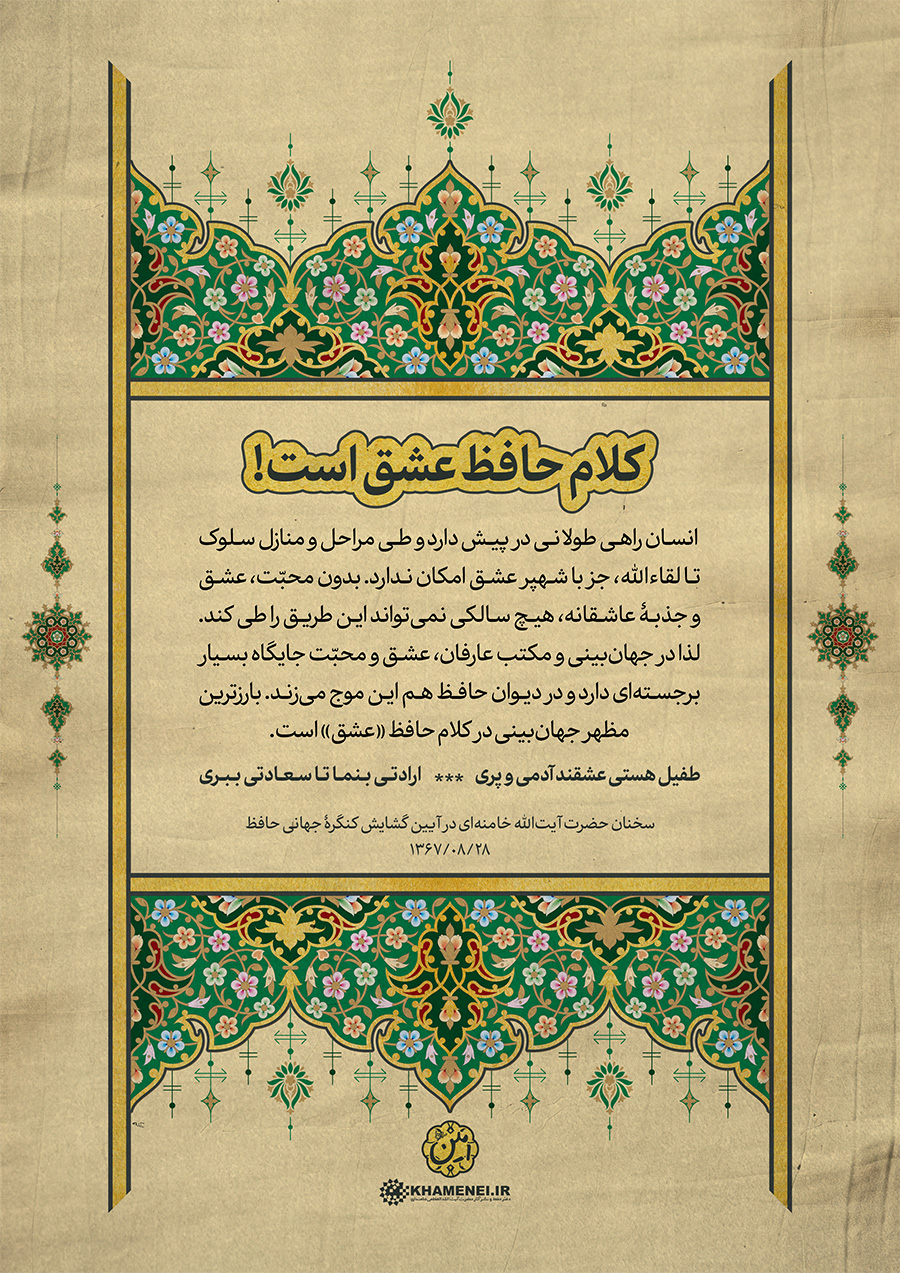 کلام حافظ عشق است!
انسان راهی طولانی در پیش دارد و طی مراحل و منازل سلوک
تا لقاءالله، جز با شهپر عشق امکان ندارد. بدون محبّت، عشق
و جذبهٔ عاشقانه، هیچ سالکی نمی‌تواند این طریق را طی کند.
لذا در جهان‌بینی و مکتب عارفان، عشق و محبّت جایگاه بسیار
برجسته‌ای دارد و در دیوان حافظ هم این موج می‌زند. بارزترین
مظهر جهان‌بینی در کلام حافظ «عشق» است.
طفیل هستی عشقند آدمی و پری *** ارادتی بنما تا سعادتی ببری
سخنان حضرت آیت‌الله خامنه‌ای در آیین گشایش کنگرهٔ جهانی حافظ
۱۳۶۷/۰۸/۲۸
KHAMENEI.IR